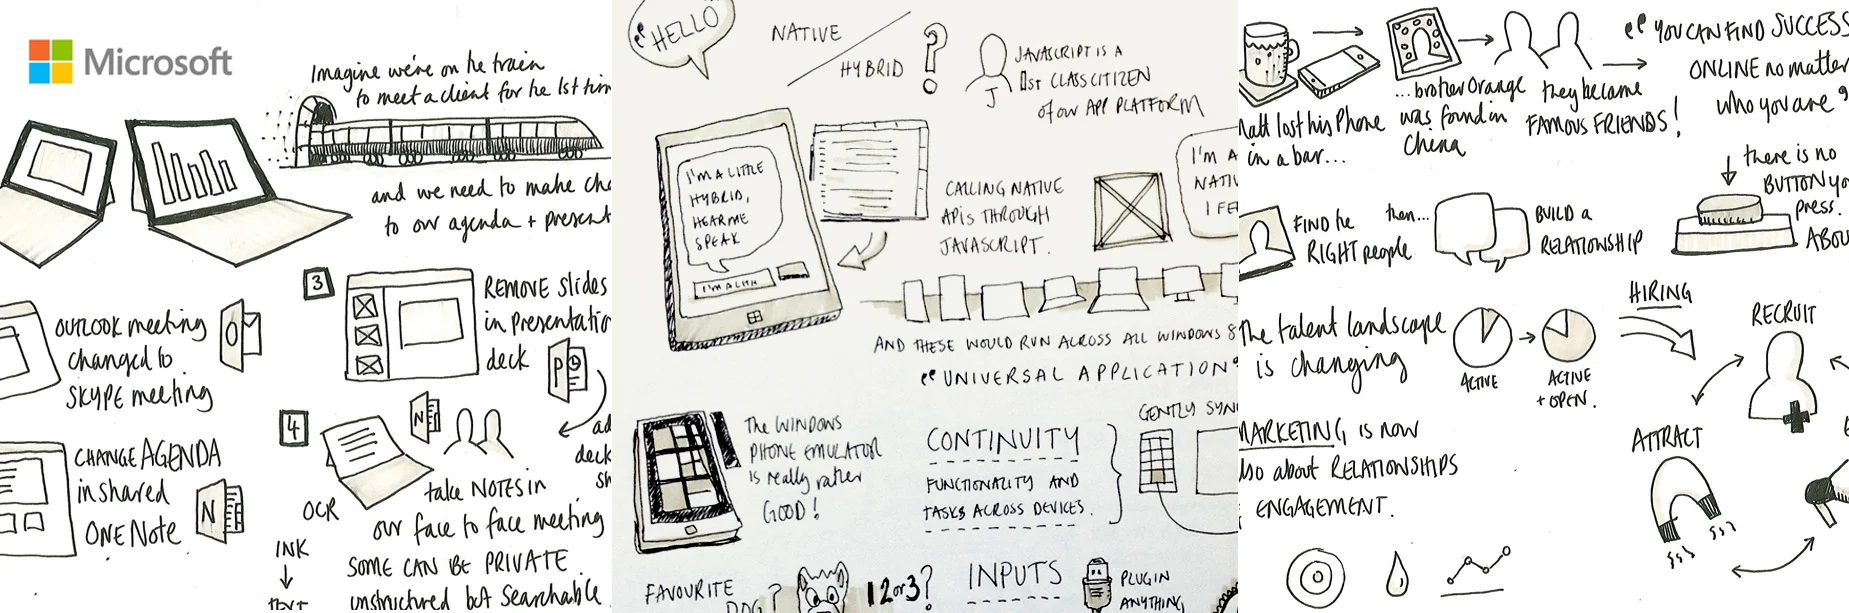 Microsoft
Imagine we're on the train
to meet a client for the 1st
and we need to make
to our agenda +
OUTLOOK meeting
changed to
SKYPE meeting
O
3
REMOVE slides
in presentation
deck
P
CHANGE AGENDA
in shared
ONE Note
N
4
N
take NOTES in
our face to face meeting
OCR
INK
SOME CAN BE PRIVATE
unstructured but searchable
HELLO
NATIVE
HYBRID
?
JAVASCRIPT IS A
1ST CLASS CITIZEN
of our APP PLATFORM
J
I'M A LITTLE
HYBRID,
HEAR ME
SPEAK
CALLING NATIVE
APIs THROUGH
JAVASCRIPT.
I'M A
I
AND THESE WOULD RUN ACROSS ALL WINDOWS 8
"UNIVERSAL APPLICATION"
THE WINDOWS
PHONE EMULATOR
is really rather
GOOD!
CONTINUITY
FUNCTIONALITY AND
TASKS ACROSS DEVICES.
GENTLY
FAVOURITE
DOG?
1 2 or 3?
INPUTS
PLUGIN
ANYTHING
lost his Phone
in a bar...
...brother Orange
was found in
China
they became
FAMOUS FRIENDS!
"YOU CAN FIND SUCCESS
ONLINE no matter
who you are"
FIND the
RIGHT people
then...
BUILD a
RELATIONSHIP
there is no
BUTTON you
press.
The talent landscape
is changing
ACTIVE
ACTIVE
+ OPEN.
HIRING
RECRUIT
ATTRACT
MARKETING is now
also about RELATIONSHIPS
ENGAGEMENT.